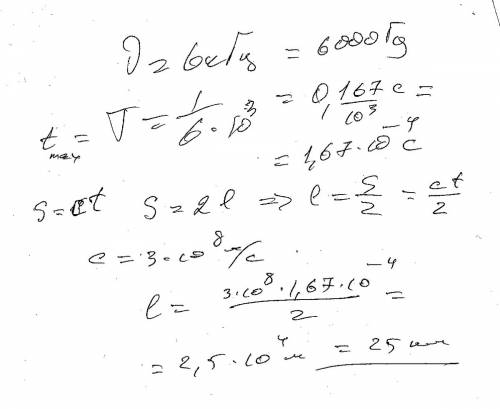 ν = 6кГц = 6000Гц
t max = T = 1/6·10³ = 0,167/10³ с =
= 1,67·10⁻⁴ с
S = ct S = 2l => l = S/2 = ct/2
c = 3·10⁸ м/с
l = 3·10⁸·1,67·10⁻⁴/2 =
= 2,5·10⁴ м = 25 км